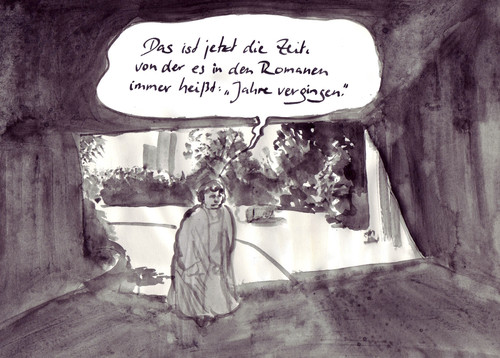 Das ist jetzt die Zeit,
von der es in den Romanen
immer heißt: „Jahre vergingen."